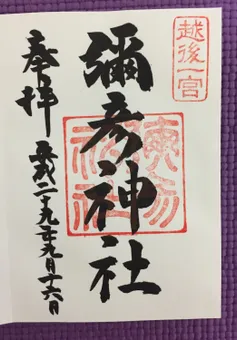 越後一宮
彌彦神社
彌彦神社
奉拝
平成二十九年九月十六日